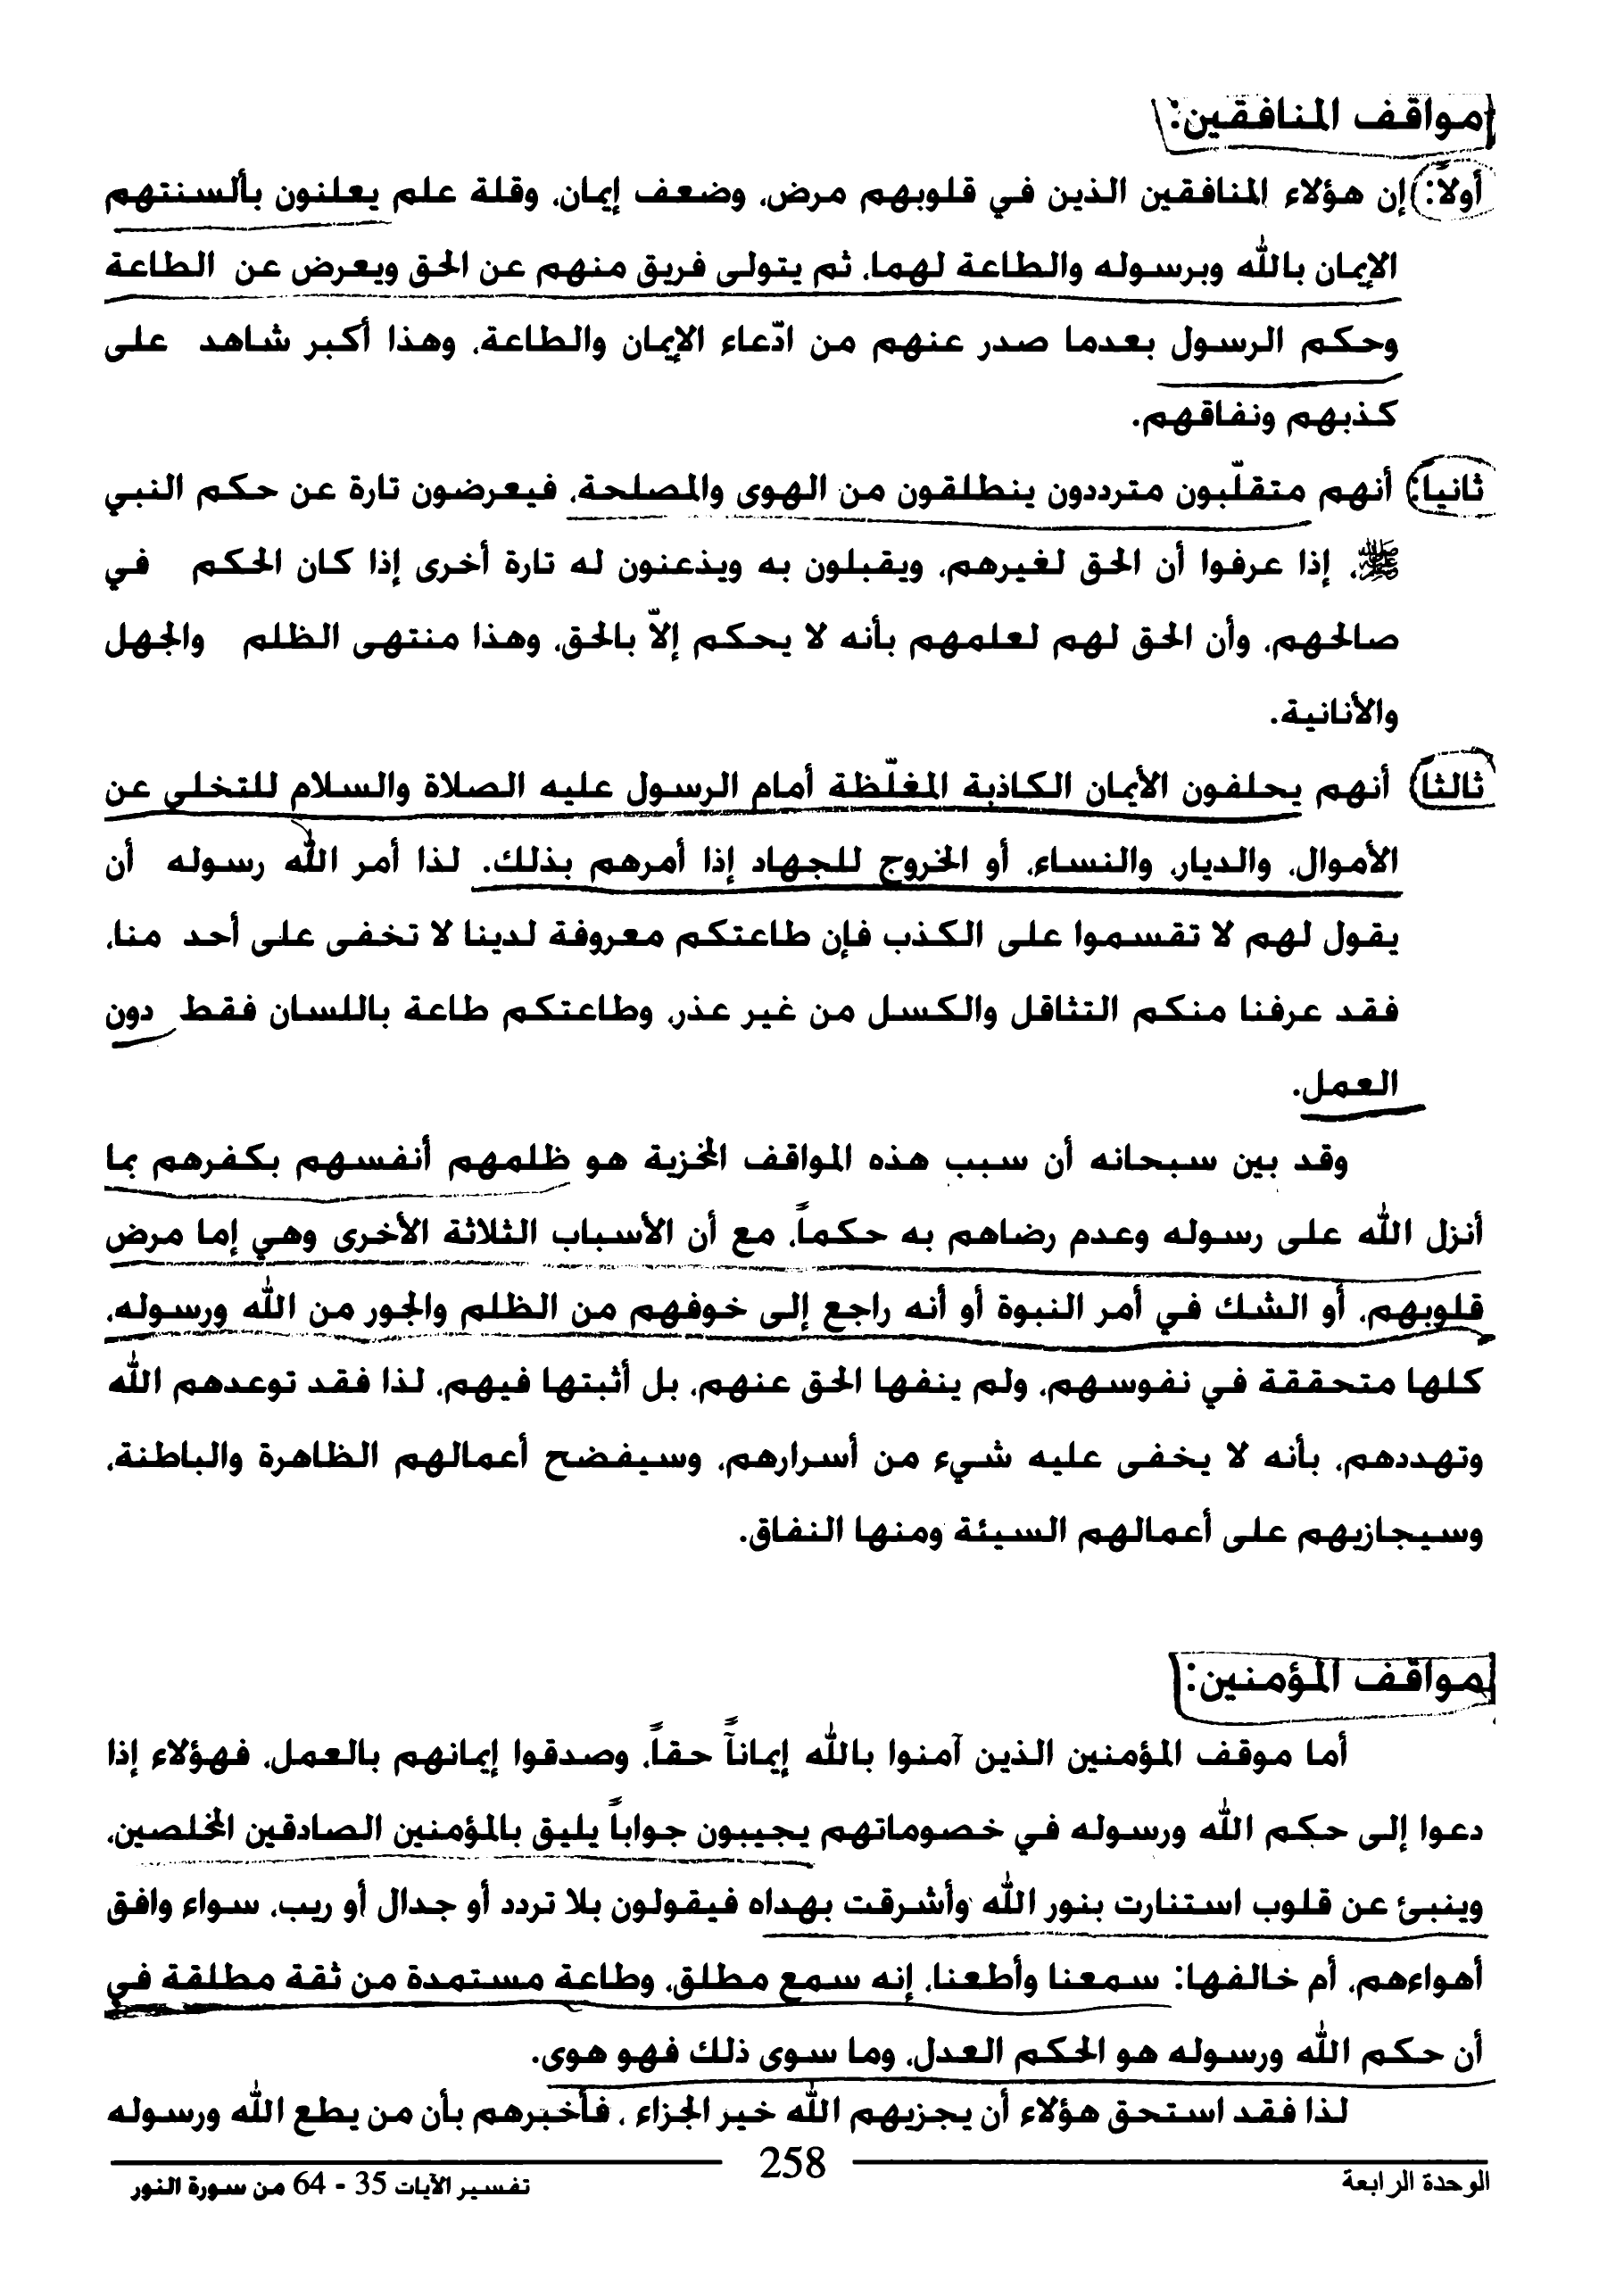 مواقف المنافقين:
أولاً: إن هؤلاء المنافقين الذين في قلوبهم مرض، وضعف إيمان، وقلة علم يعلنون بألسنتهم
الإيمان بالله وبرسوله والطاعة لهما، ثم يتولى فريق منهم عن الحق ويعرض عن الطاعة
وحكم الرسول بعدما صدر عنهم من ادّعاء الإيمان والطاعة، وهذا أكبر شاهد على
كذبهم ونفاقهم.
ثانياً: أنهم متقلّبون مترددون ينطلقون من الهوى والمصلحة، فيعرضون تارة عن حكم النبي
ﷺ، إذا عرفوا أن الحق لغيرهم، ويقبلون به ويذعنون له تارة أخرى إذا كان الحكم في
صالحهم، وأن الحق لهم لعلمهم بأنه لا يحكم إلاّ بالحق، وهذا منتهى الظلم والجهل
والأنانية.
ثالثاً) أنهم يحلفون الأيمان الكاذبة المغلّظة أمام الرسول عليه الصلاة والسلام للتخلي عن
الأموال، والديار، والنساء، أو الخروج للجهاد إذا أمرهم بذلك. لذا أمر الله رسوله أن
يقول لهم لا تقسموا على الكذب فإن طاعتكم معروفة لدينا لا تخفى على أحد منا،
فقد عرفنا منكم التثاقل والكسل من غير عذر، وطاعتكم طاعة باللسان فقط دون
العمل.
وقد بين سبحانه أن سبب هذه المواقف المخزية هو ظلمهم أنفسهم بكفرهم بما
أنزل الله على رسوله وعدم رضاهم به حكماً، مع أن الأسباب الثلاثة الأخرى وهي إما مرض
قلوبهم، أو الشك في أمر النبوة أو أنه راجع إلى خوفهم من الظلم والجور من الله ورسوله،
كلها متحققة في نفوسهم، ولم ينفها الحق عنهم، بل أثبتها فيهم، لذا فقد توعدهم الله
وتهددهم، بأنه لا يخفى عليه شيء من أسرارهم، وسيفضح أعمالهم الظاهرة والباطنة،
وسيجازيهم على أعمالهم السيئة ومنها النفاق.
مواقف المؤمنين:
أما موقف المؤمنين الذين آمنوا بالله إيماناً حقاً، وصدقوا إيمانهم بالعمل، فهؤلاء إذا
دعوا إلى حكم الله ورسوله في خصوماتهم يجيبون جواباً يليق بالمؤمنين الصادقين المخلصين،
وينبئ عن قلوب استنارت بنور الله وأشرقت بهداه فيقولون بلا تردد أو جدال أو ريب، سواء وافق
أهواءهم، أم خالفها: سمعنا وأطعنا، إنه سمع مطلق، وطاعة مستمدة من ثقة مطلقة في
أن حكم الله ورسوله هو الحكم العدل، وما سوى ذلك فهو هوى.
لذا فقد استحق هؤلاء أن يجزيهم الله خير الجزاء، فأخبرهم بأن من يطع الله ورسوله
258
الوحدة الرابعة
تفسير الآيات 35 - 64 من سورة النور